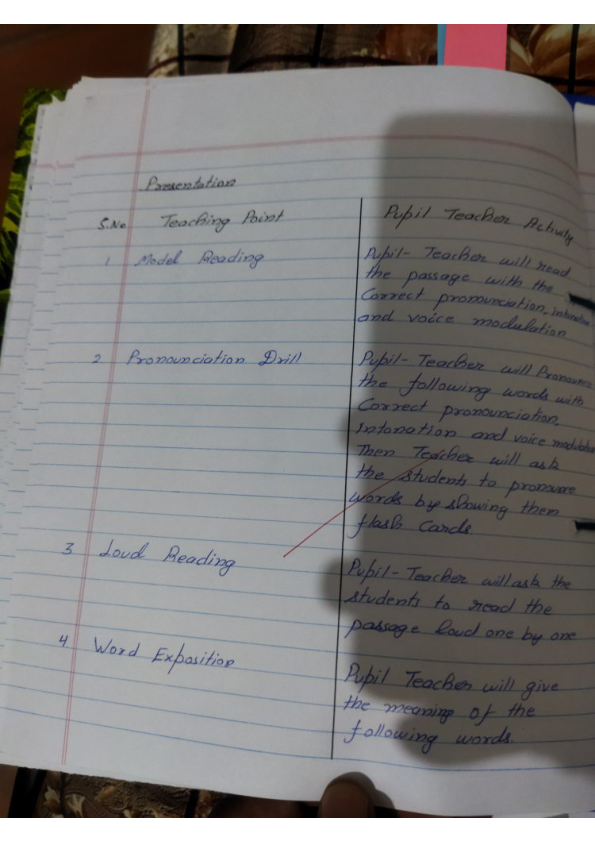 Presentation
S.No Teaching Point Pupil Teacher Activity
1 Model Reading Pupil- Teacher will read
the passage with the
Correct pronunciation, intonation
and voice modulation
2 Pronounciation Drill Pupil- Teacher will Pronounce
the following words with
Correct pronounciation,
Intonation and voice modulation
Then Teacher will ask
the students to pronounce
words by showing them
flash Cards.
3 Loud Reading Pupil- Teacher will ask the
students to read the
passage loud one by one
4 Word Exposition Pupil Teacher will give
the meaning of the
following words.